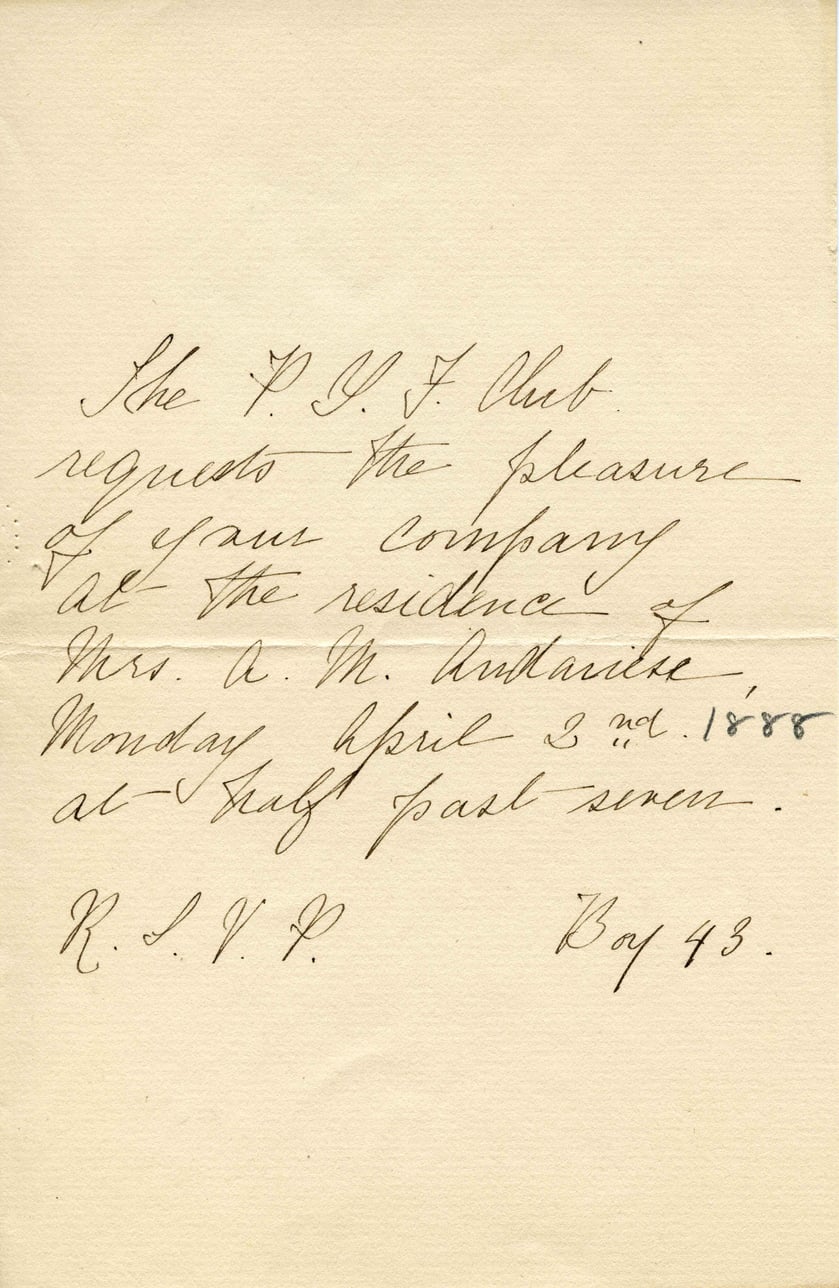 The P. Y. F. Club
requests the pleasure
of your company
at the residence of
Mrs. A. M. Andariese,
Monday April 2nd. 1888
at half past seven.
R. S. V. P. Box 43.